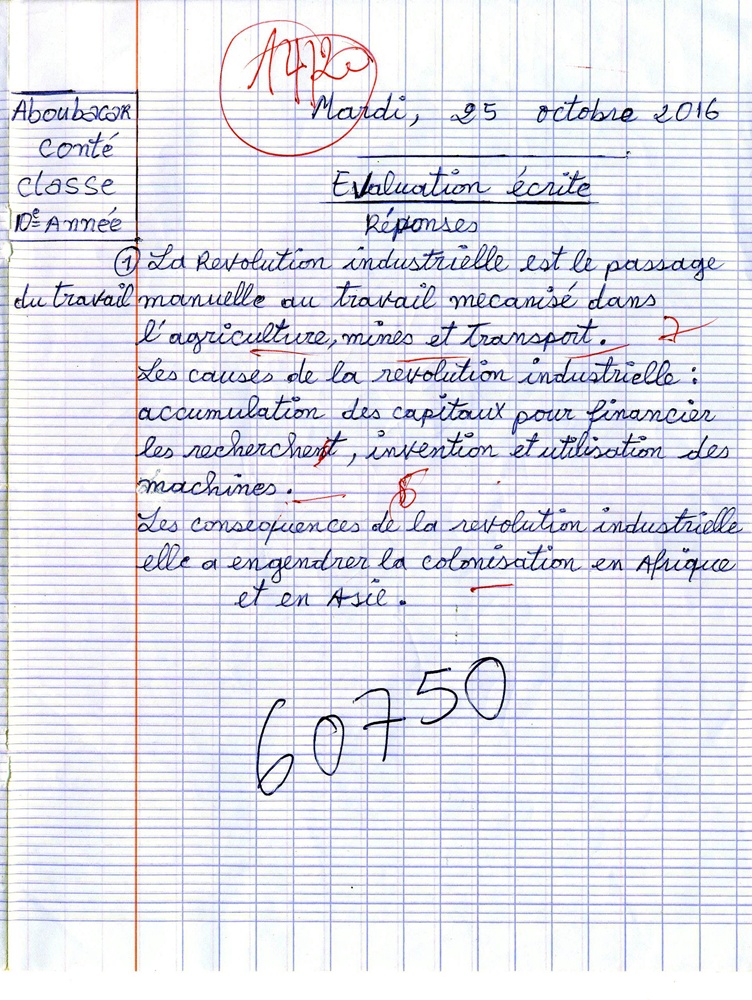 14/20
Mardi, 25 octobre 2016
Aboubacar
Conté
Classe
10e Année
Evaluation écrite
Réponses
① La Revolution industrielle est le passage
du travail manuelle au travail mecanisé dans
l'agriculture, mines et transport.
Les causes de la revolution industrielle :
accumulation des capitaux pour financier
les recherchent, invention et utilisation des
machines.
Les consequences de la revolution industrielle
elle a engendrer la colonisation en Afrique
et en Asie.
60750